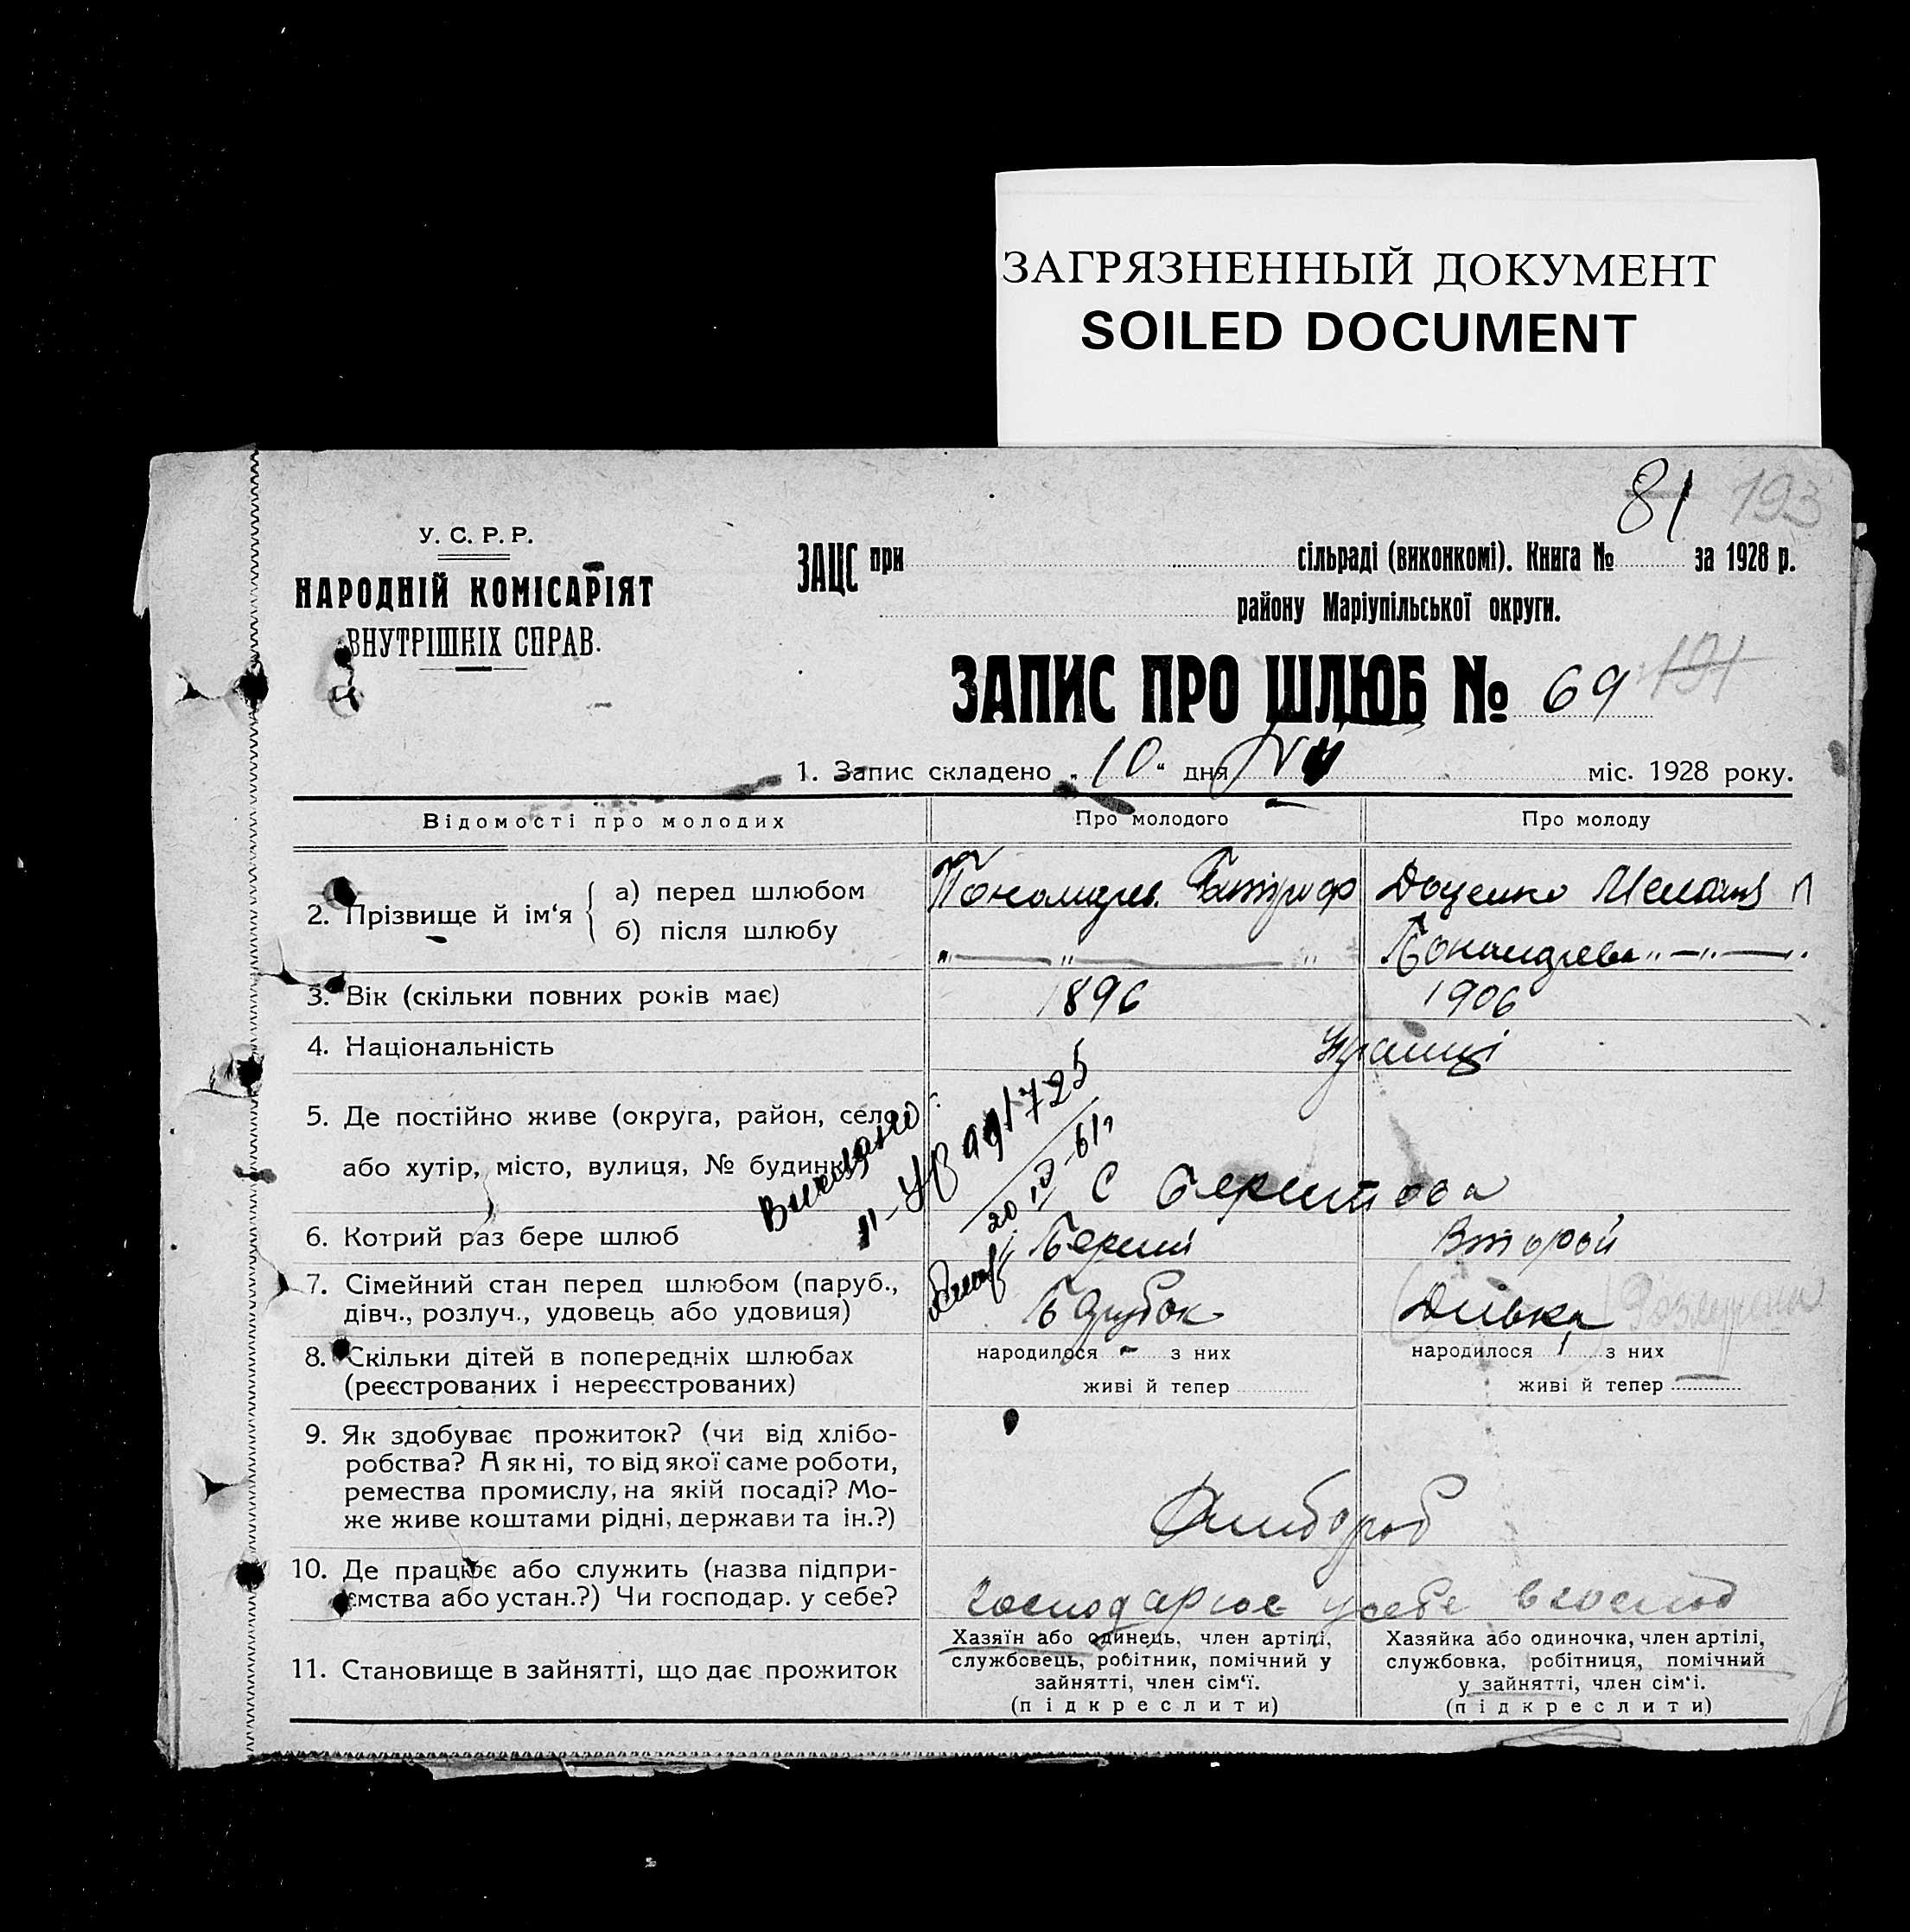 ЗАГРЯЗНЕННЫЙ ДОКУМЕНТ
SOILED DOCUMENT
81 193
У. С. Р. Р.
НАРОДНІЙ КОМІСАРІЯТ
ВНУТРІШНІХ СПРАВ.
ЗАЦС при сільраді (виконкомі). Книга № за 1928 р.
району Маріупільської округи.
ЗАПИС ПРО ШЛЮБ № 69 191
1. Запис складено „ 10 “ дня міс. 1928 року.
Відомості про молодих Про молодого Про молоду
2. Прізвище й ім‘я
а) перед шлюбом Доценко
б) після шлюбу „ — „ — „
3. Вік (скільки повних років має) 1896 1906
4. Національність
5. Де постійно живе (округа, район, село
або хутір, місто, вулиця, № будинку) С
6. Котрий раз бере шлюб Перший Второй
7. Сімейний стан перед шлюбом (паруб.,
дівч., розлуч., удовець або удовиця) Парубок Дівка
8. Скільки дітей в попередніх шлюбах
(реєстрованих і нереєстрованих)
народилося - з них
живі й тепер
народилося 1 з них
живі й тепер —
9. Як здобуває прожиток? (чи від хлібо-
робства? А як ні, то від якої саме роботи,
ремества промислу, на якій посаді? Мо-
же живе коштами рідні, держави та ін.?)
Хлібороб
10. Де працює або служить (назва підпри-
ємства або устан.?) Чи господар. у себе?
господарює у себе
11. Становище в зайнятті, що дає прожиток
Хазяїн або одинець, член артілі,
службовець, робітник, помічний у
зайнятті, член сім‘ї.
(підкреслити)
Хазяйка або одиночка, член артілі,
службовка, робітниця, помічний
у зайнятті, член сім‘ї.
(підкреслити)